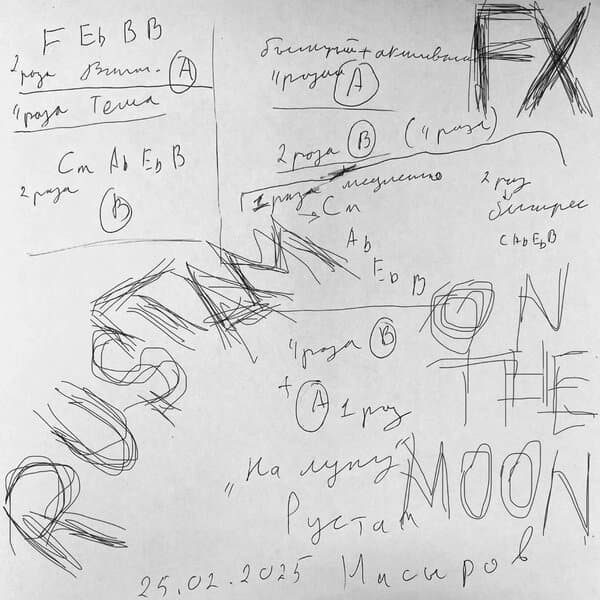 F Eb B B
2 раза Вступ. A
4 раза Тема
Cm Ab Eb B
2 раза
B
4 раза A
2 раза B (4 раза)
1 раз медленно
Cm
Ab
Eb
B
2 раз
быстрее
C Ab Eb B
4 раза B
+ A 1 раз
„На луну"
Рустам
Насыров
25.02.2025
FX
RUSTAM
ON
THE
MOON